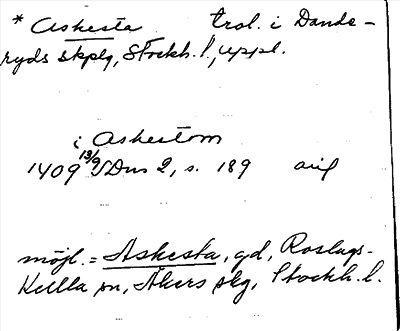 * Askesta trol. i Dande-
ryds skplg, Stockh. l., Uppl.
i Askestom
1409 13/9 SDns 2, s. 189 avs
möjl. = Askesta, gd, Roslags-
Kulla sn, Åkers skg, Stockh. l.